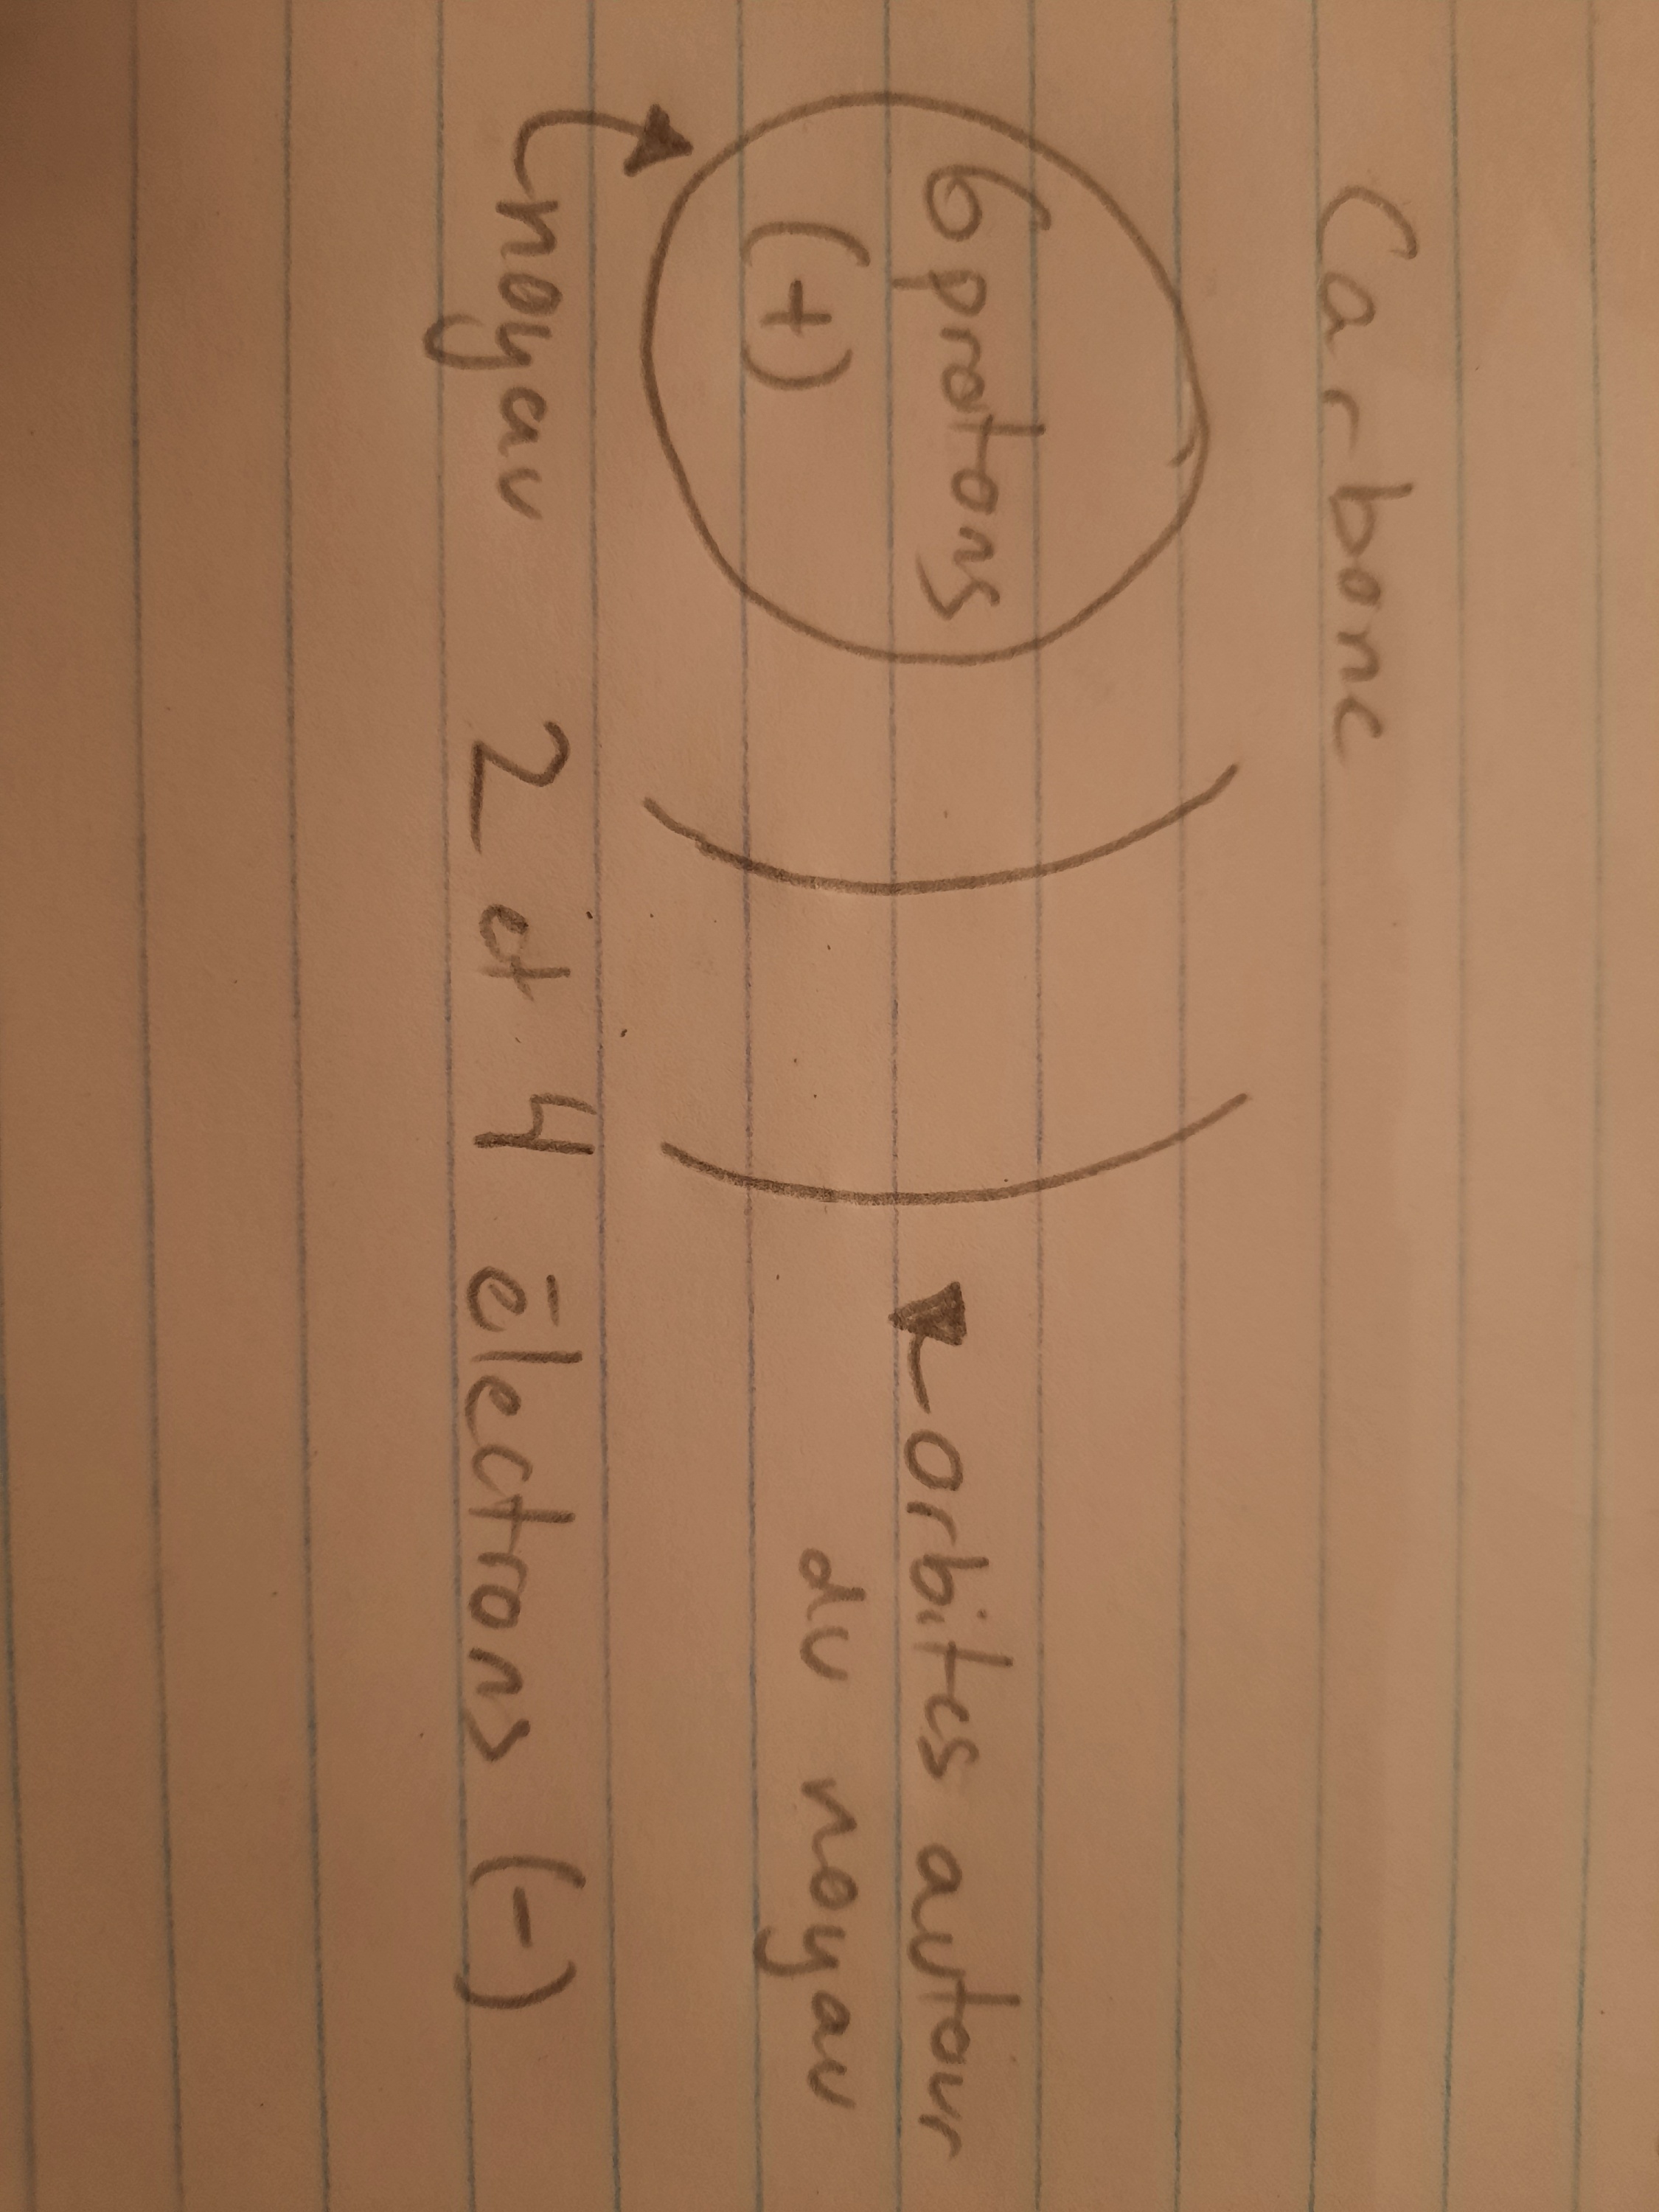 Carbone
6 protons
(+)
orbites autour
du noyau
noyau
2 et 4 électrons (-)